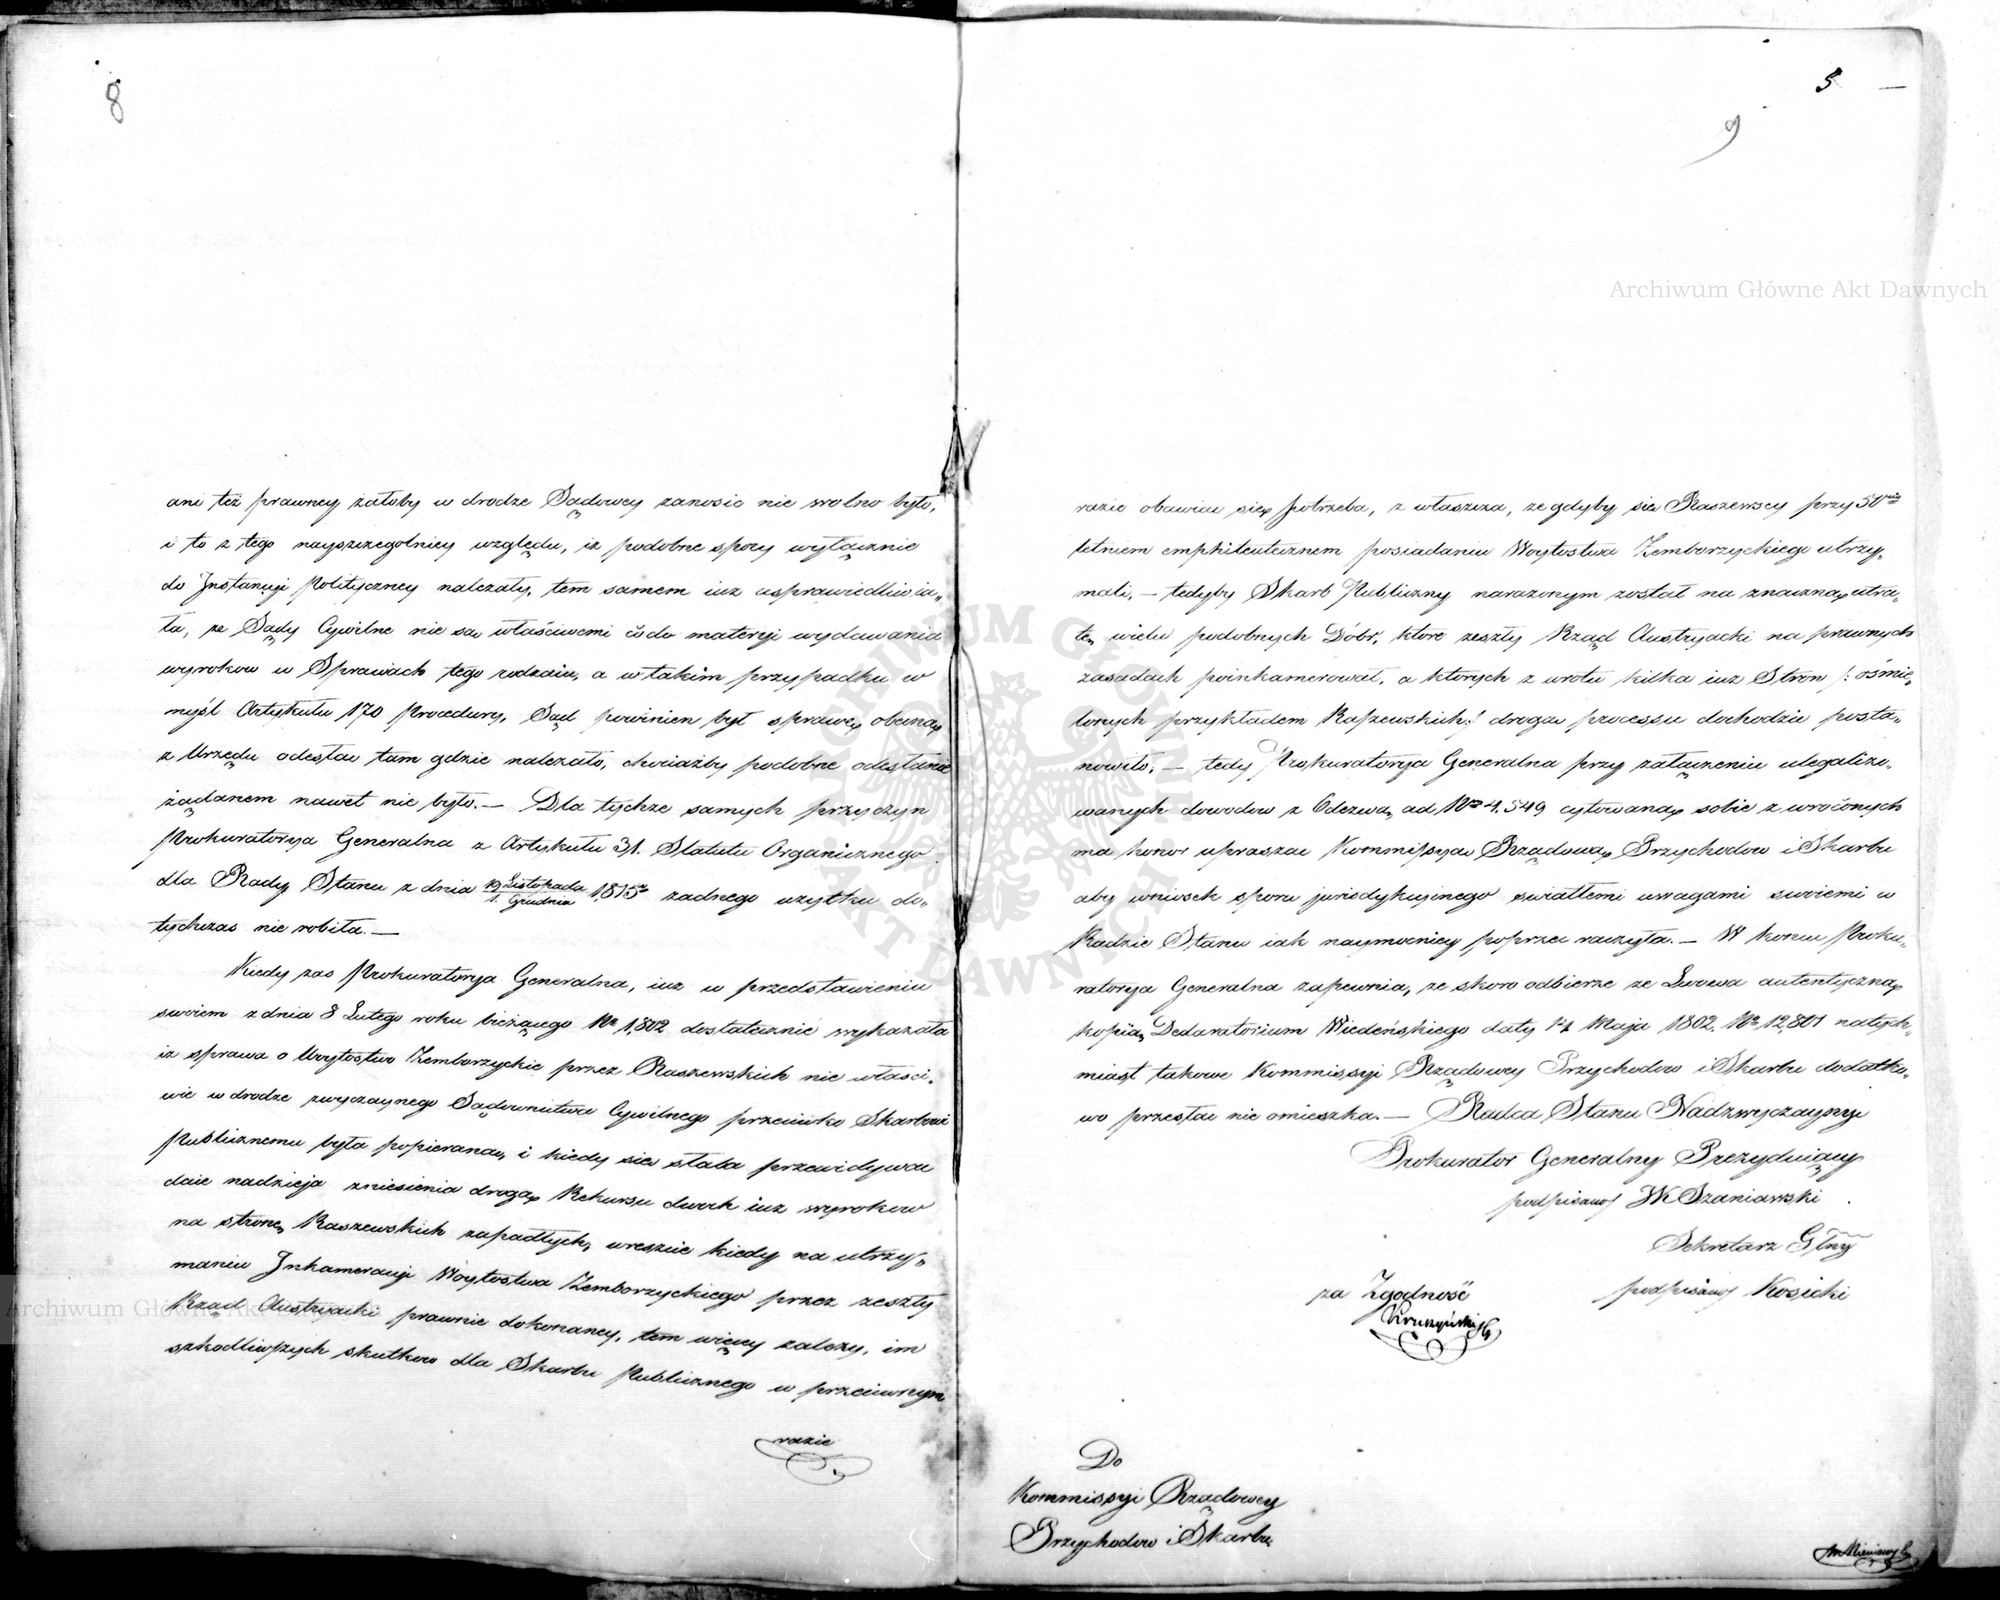 8
ani też prawney załoby w drodze Sądowey zanosic nie wolno było,
i to z tego nayszczegolniey względu, iz podobne spory wyłącznie
do Jnstancyi Polityczney nalezały, tem samem iuz usprawiedliwia„
ła, ze Sądy Cywilne nie są właściwemi co do materyi wydawania
wyrokow w Sprawach tego rodzaiu, a w takim przypadku w
myśl Artykułu 170 Procedury, Sąd powinien był sprawę obecną
z Urzędu odesłac tam gdzie nalezało, chociażby podobne odesłanie
żądanem nawet nie było. — Dla tychze samych przyczyn
Prokuratorya Generalna z Artykułu 31. Statutu Organicznego
dla Rady Stanu z dnia 19 Listopada / 1. Grudnia 1,815 zadnego uzytku do„
tychczas nie robiła. —
Kiedy zas Prokuratorya Generalna, iuz w przedstawieniu
swoiem z dnia 8 Lutego roku bieżącego No 1,802 dostatecznie wykazała
iz sprawa o Woytostwo Zemborzyckie przez Raszewskich nie właści„
wie w drodze zwyczaynego Sądownictwa Cywilnego przeciwko Skarbowi
Publicznemu była popieraną, i kiedy się stała przewidywac
daie nadzieja zniesienia drogą Rekursu dwoch iuz wyrokow
na stronę Raszewskich zapadłych, wreszcie kiedy na utrzy„
maniu Jnkameracyi Woytostwa Zemborzyckiego przez zeszły
Rząd Austryacki prawnie dokonaney, tem więcey zalezy, im
szkodliwszych skutkow dla Skarbu Publicznego w przeciwnym
razie
5
9
razie obawiac się potrzeba, z właszcza, ze gdyby się Raszewscy przy 50
letniem emphiteutycznem posiadaniu Woytostwa Zemborzyckiego utrzy„
mali, — tedyby Skarb Publiczny narazonym został na znaczną utra„
tę wielu podobnych Dóbr, ktore zeszły Rząd Austryacki na prawnych
zasadach poinkamerował, a ktorych z wrotu kilka iuz Stron /: ośmie„
lonych przykładem Raszewskich :/ drogą processu dochodzic posta„
nowiło, — tedy Prokuratorya Generalna przy załączeniu ulegalizo„
wanych dowodow z Odezwą ad No 4.549 cytowaną sobie z wroconych
ma honor upraszac Kommissyą Rządową Przychodow i Skarbu
aby wniosek sporu jurisdykcyinego swiatłemi uwagami swoiemi w
Radzie Stanu iak naymocniey poprzec raczyła. — W koncu Proku„
ratorya Generalna zapewnia, ze skoro odbierze ze Lwowa autentyczną
kopią Declaratorium Wiedeńskiego daty 14 Maja 1802. No 12,801 natych„
miast takowe Kommissyi Rządowey Przychodow i Skarbu dodatko„
wo przesłac nie omieszka. — Radca Stanu Nadzwyczayny
Prokurator Generalny Prezyduiący
podpisano/ JK Szaniawski
Sekretarz Glny
podpisano/ Kosicki
za Zgodność
Do
Kommissyi Rządowey
Przychodow i Skarbu
Archiwum Główne Akt Dawnych
Archiwum Główne Akt
ARCHIWUM GŁÓWNE AKT DAWNYCH